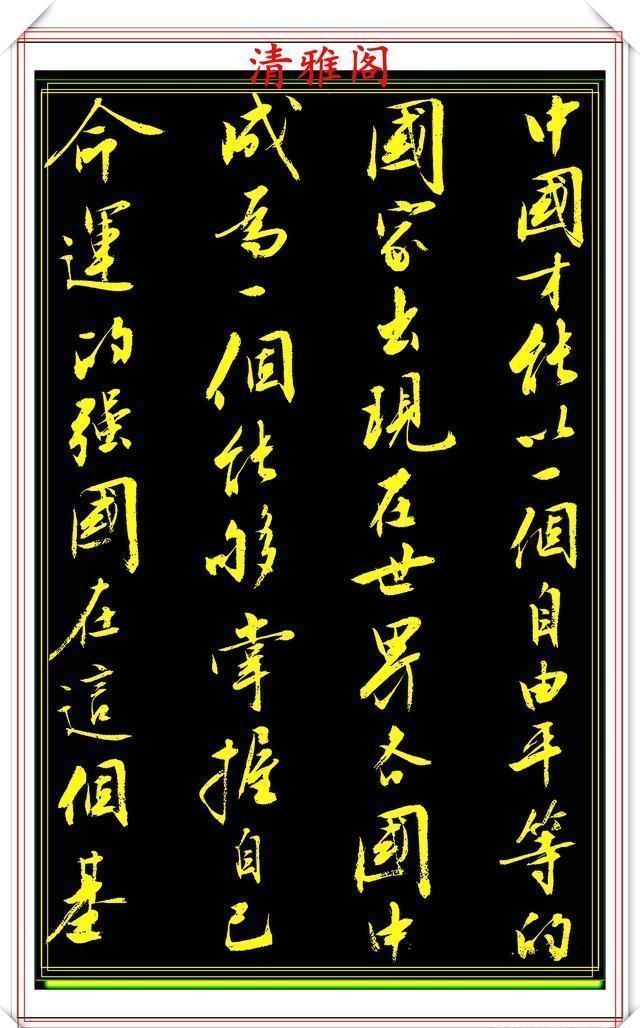 清雅阁
中國才能以一個自由平等的
國家出現在世界各國中
成爲一個能够掌握自己
命運的强國在這個基